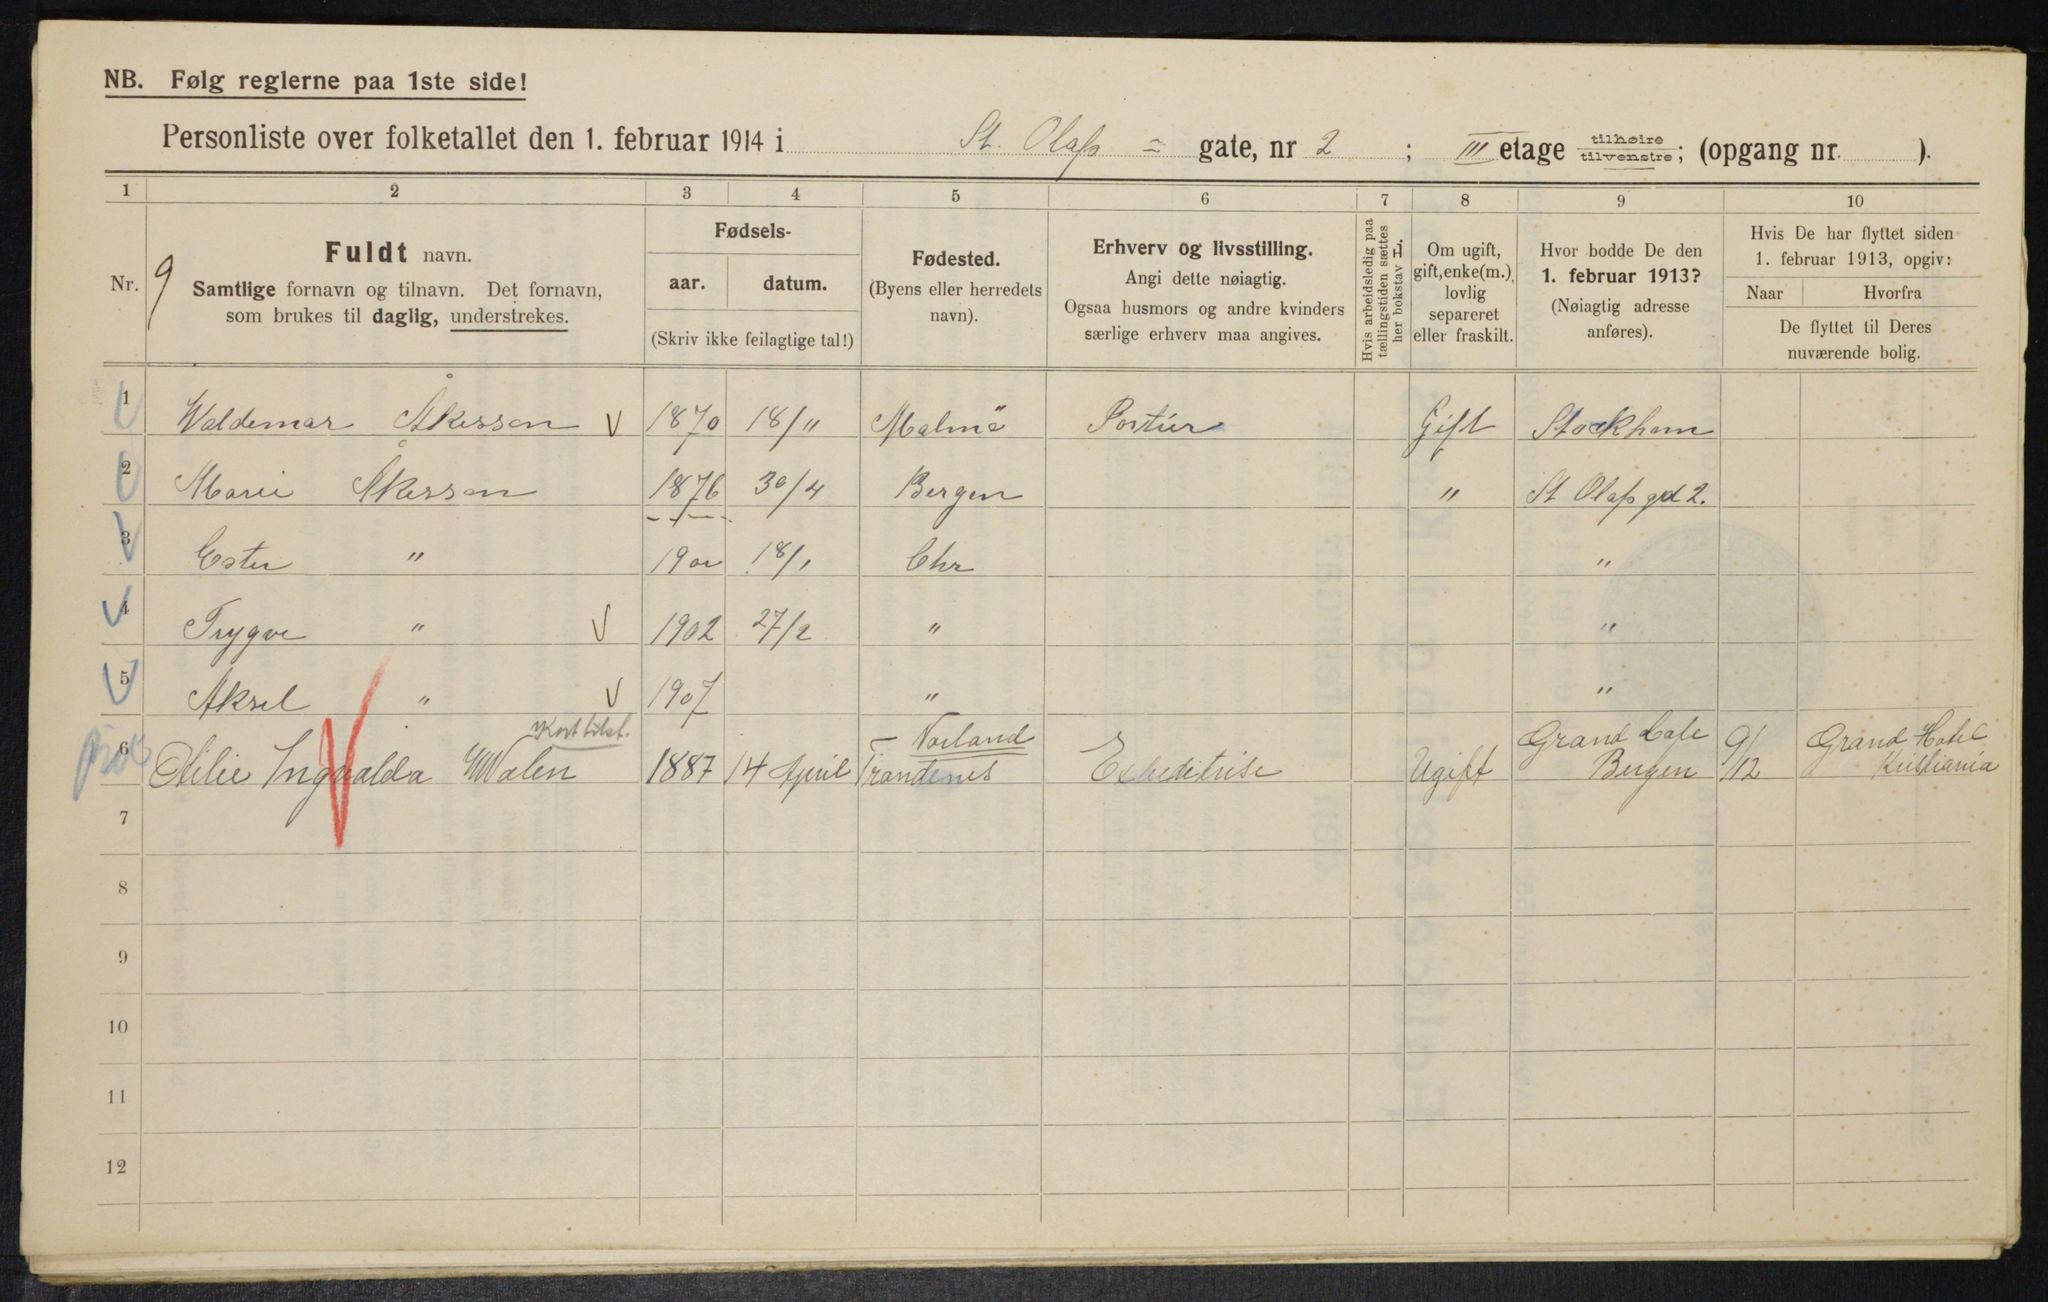 NB. Følg reglerne paa 1ste side!
Personliste over folketallet den 1. februar 1914 i St. Olafs = gate, nr 2 ; III etage tilhøire tilvenstre; (opgang nr. ).
1 2 3 4 5 6 7 8 9 10
Nr.
9
Fuldt navn.
Samtlige fornavn og tilnavn. Det fornavn,
som brukes til daglig, understrekes.
Fødsels-
aar. datum.
(Skriv ikke feilagtige tal!)
Fødested.
(Byens eller herredets
navn).
Erhverv og livsstilling.
Angi dette nøiagtig.
Ogsaa husmors og andre kvinders
særlige erhverv maa angives.
Hvis arbeidsledig paa
tællingstiden sættes
her bokstav L.
Om ugift,
gift, enke(m.),
lovlig
separeret
eller fraskilt.
Hvor bodde De den
1. februar 1913?
(Nøiagtig adresse
anføres).
Hvis De har flyttet siden
1. februar 1913, opgiv:
Naar Hvorfra
De flyttet til Deres
nuværende bolig.
1 Waldemar Åkesson 1870 18/11 Malmö Portier Gift Stockhom
2 Marie Åkesson 1876 30/4 Bergen " St Olafs gd 2.
3 Ester " 18/1 Chr "
4 Trygve " 1902 27/2 " "
5 Aksel " 1907 " "
Kort tilst. Norland
6 Ingvalda Walen 1887 14 April Trandenes Expeditrise Ugift Grand Cafe Bergen 9/12 Grand Hotel Kristiania
7
8
9
10
11
12